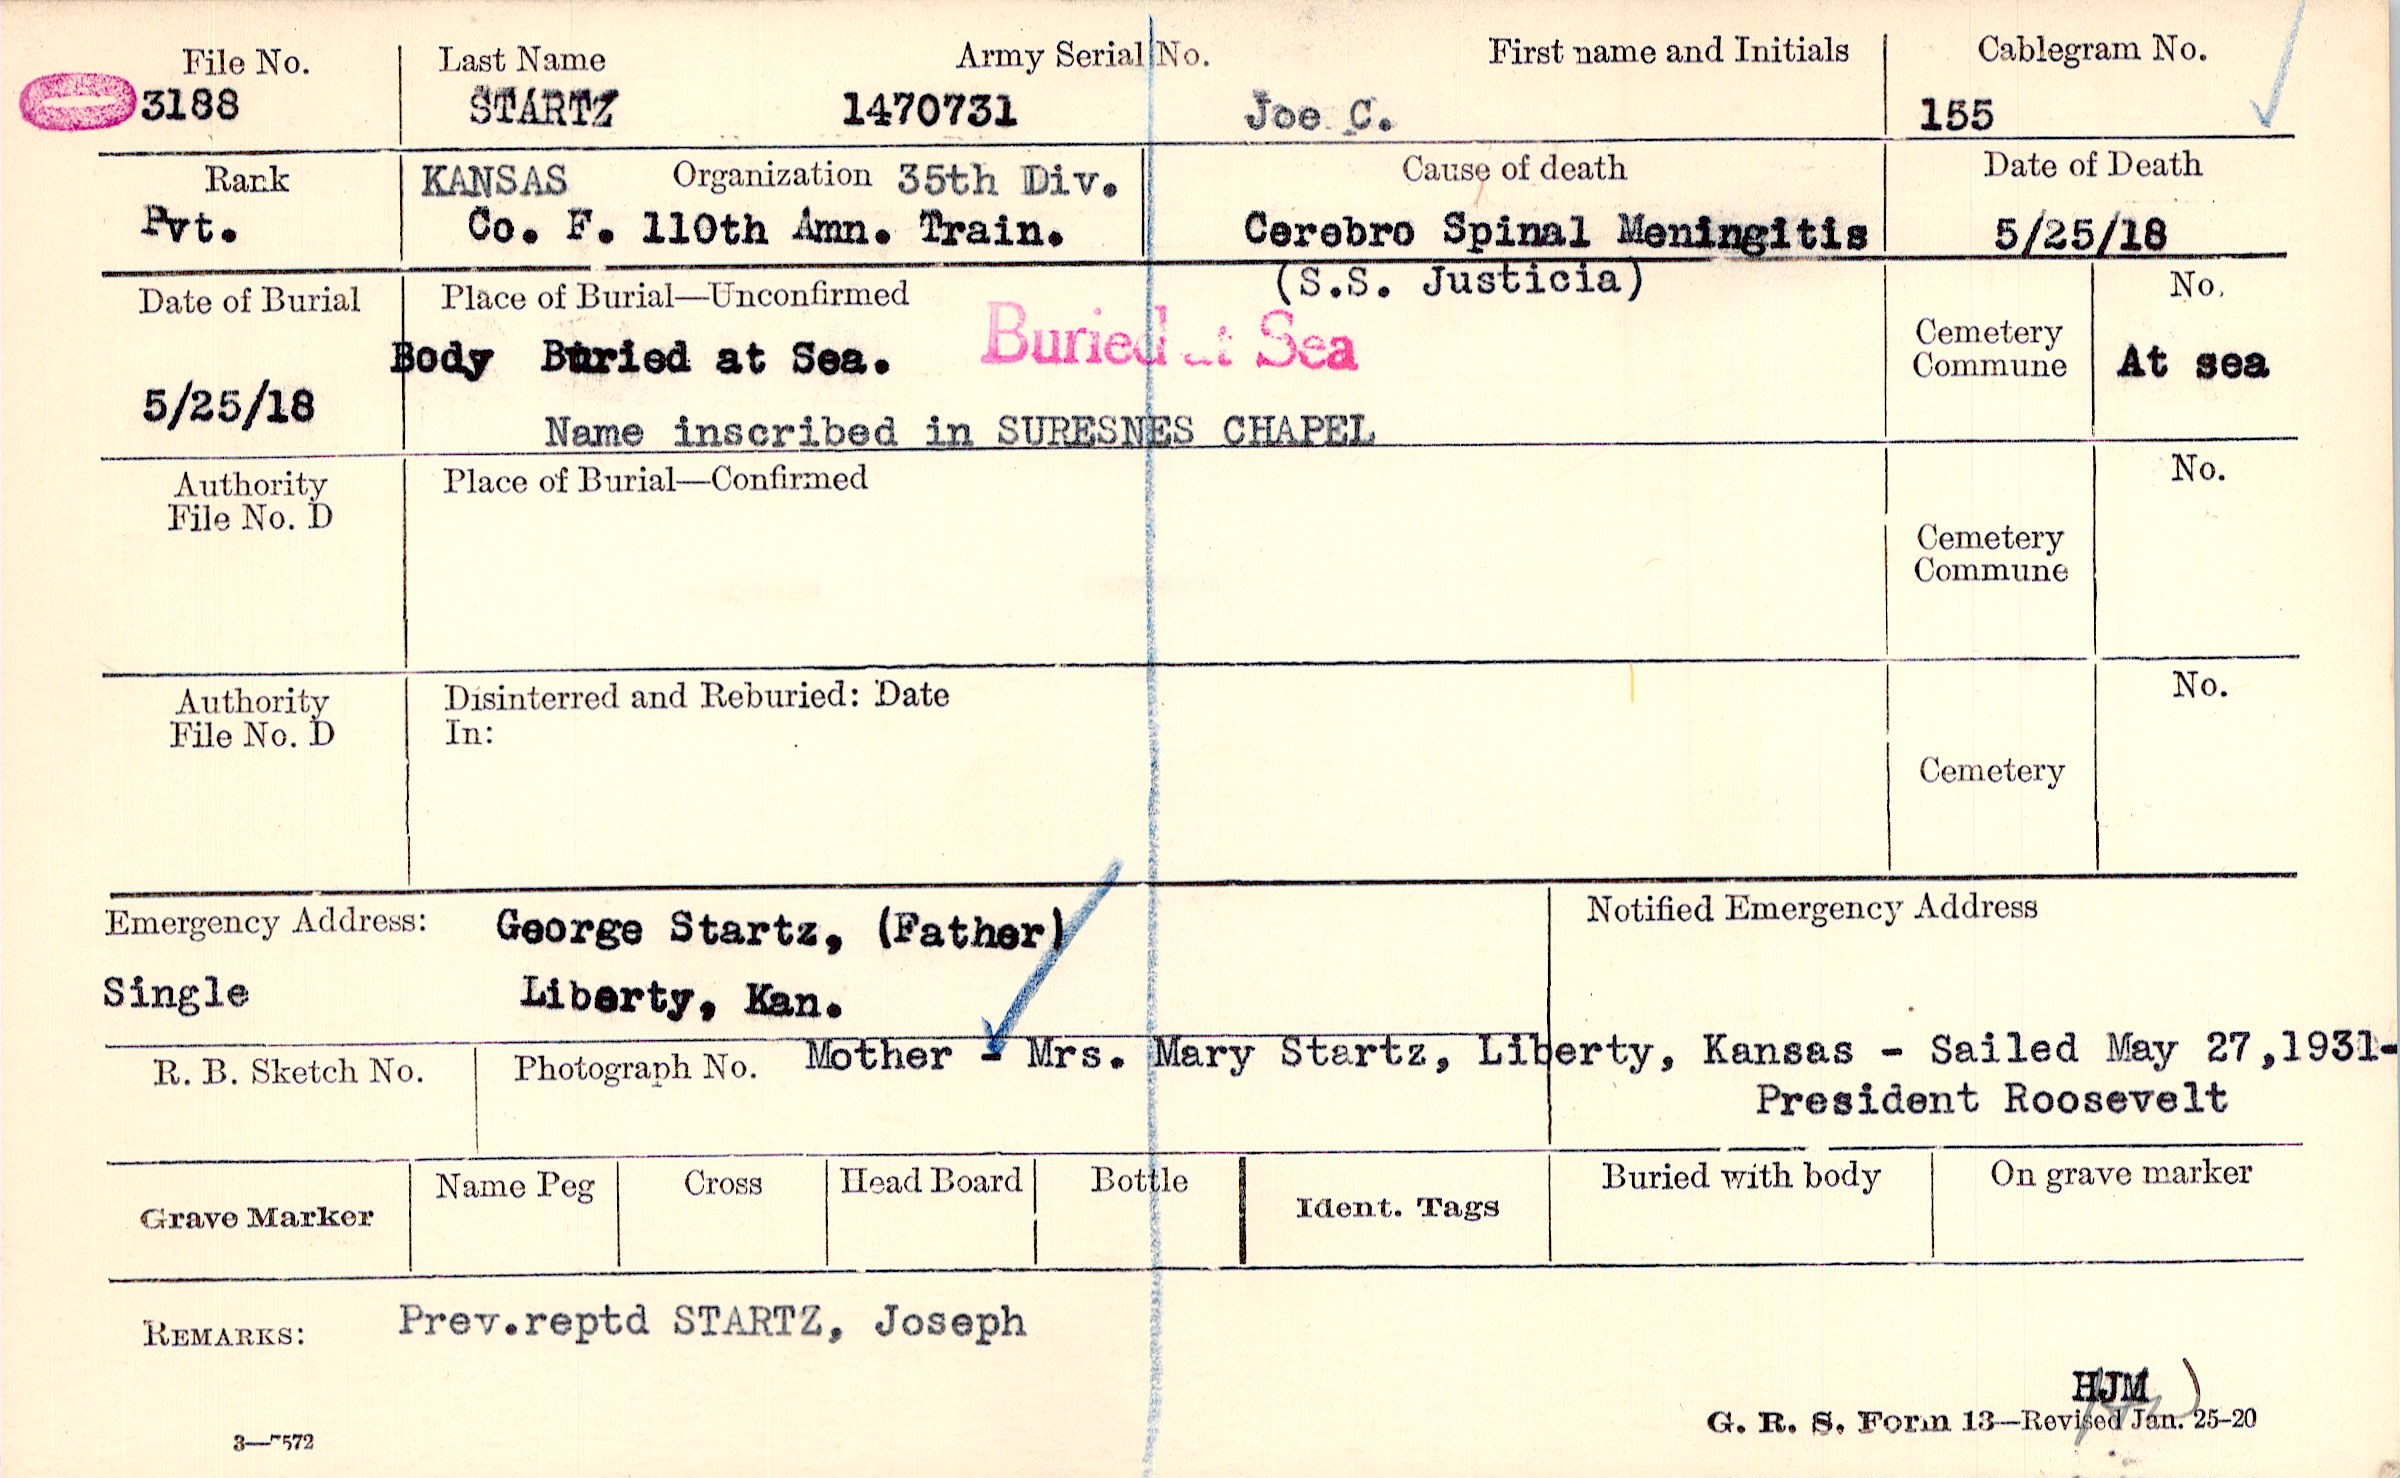 File No. Last Name Army Serial No. First name and Initials Cablegram No.
3188 STARTZ 1470731 Joe C. 155
Rank KANSAS Organization 35th Div. Cause of death Date of Death
Pvt. Co. F. 110th Amn. Train. Cerebro Spinal Meningitis 5/25/18
(S.S. Justicia)
Date of Burial Place of Burial—Unconfirmed No.
Buried at Sea
Body Buried at Sea. Cemetery Commune At sea
5/25/18
Name inscribed in SURESNES CHAPEL
Authority Place of Burial—Confirmed No.
File No. D
Cemetery
Commune
Authority Disinterred and Reburied: Date No.
File No. D In:
Cemetery
Emergency Address: George Startz, (Father) Notified Emergency Address
Single Liberty, Kan.
R. B. Sketch No. Photograph No. Mother - Mrs. Mary Startz, Liberty, Kansas - Sailed May 27,1931-
President Roosevelt
Grave Marker Name Peg Cross Head Board Bottle Ident. Tags Buried with body On grave marker
REMARKS: Prev.reptd STARTZ, Joseph
HJM
G. R. S. Form 13—Revised Jan. 25-20